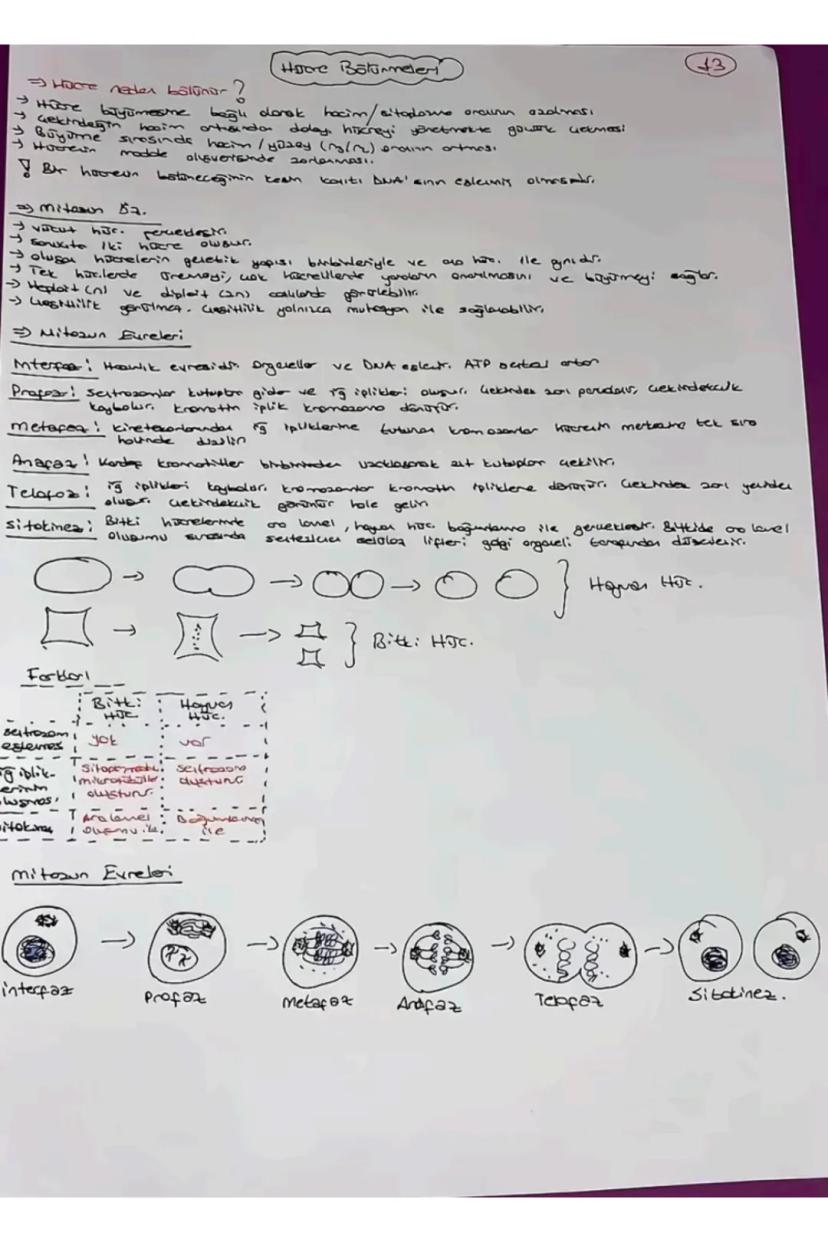 Hücre Bölünmeleri
13
⇒ Hücre neden bölünür?
→ Hücre büyümesine bağlı olarak hacim/sitoplazma oranının azalması
→ Çekirdeğin hacim artışından dolayı hücreyi yönetmekte güçlük çekmesi
→ Büyüme sırasında hacim/yüzey (r³/r²) oranın artması
→ Hücrenin madde alışverişinde zorlanması.
! Bir hücrenin bölüneceğinin kesin kanıtı DNA'sının eşlenmiş olmasıdır.
⇒ Mitozun Öz.
→ Vücut hüc. gerçekleşir.
→ Sonuçta iki hücre oluşur.
→ Oluşan hücrelerin genetik yapısı birbirleriyle ve ana hüc. ile aynıdır.
→ Tek hüc.lerde üremeyi, çok hücrelilerde yaraların onarılmasını ve büyümeyi sağlar.
→ Haploit (n) ve diploit (2n) canlılarda görülebilir.
→ Çeşitlilik görülmez. Çeşitlilik yalnızca mutasyon ile sağlanabilir.
⇒ Mitozun Evreleri
İnterfaz: Hazırlık evresidir. Organeller ve DNA eşlenir. ATP sentezi artar
Profaz: Sentrozomlar kutuplara gider ve iğ iplikleri oluşur. Çekirdek zarı parçalanır, çekirdekcik
kaybolur. Kromatin iplik kromozoma dönüşür.
Metafaz: Kinetokorlarından iğ ipliklerine tutunan kromozomlar hücrenin merkezine tek sıra
halinde dizilir
Anafaz: Kardeş kromatitler birbirinden uzaklaşarak zıt kutuplara çekilir.
Telofaz: iğ iplikleri kaybolur. Kromozomlar kromatin ipliklere dönüşür. Çekirdek zarı yeniden
oluşur. Çekirdekcik görünür hale gelir
Sitokinez: Bitki hücrelerinde ara lamel, hayvan hüc. boğumlanma ile gerçekleşir. Bitkide ara lamel
oluşumu sırasında sentezlenen selüloz lifleri golgi organeli tarafından düzenlenir.
Hayvan Hüc.
Bitki Hüc.
Farkları
Bitki Hüc. Hayvan Hüc.
sentrozom eşlemes yok var
iğ iplik-lerinin oluşması Sitoplazmadaki mikrotübüller oluşturur. Sentrozom oluşturur
sitokinez Ara lamel oluşumu ile. Boğumlanma ile
Mitozun Evreleri
interfaz Profaz Metafaz Anafaz Telofaz Sitokinez.